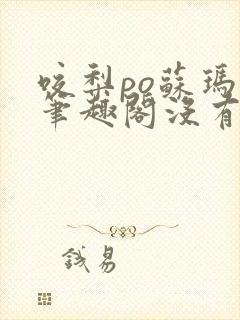 咬梨po蘇瑪
筆趣閣沒有
錢易